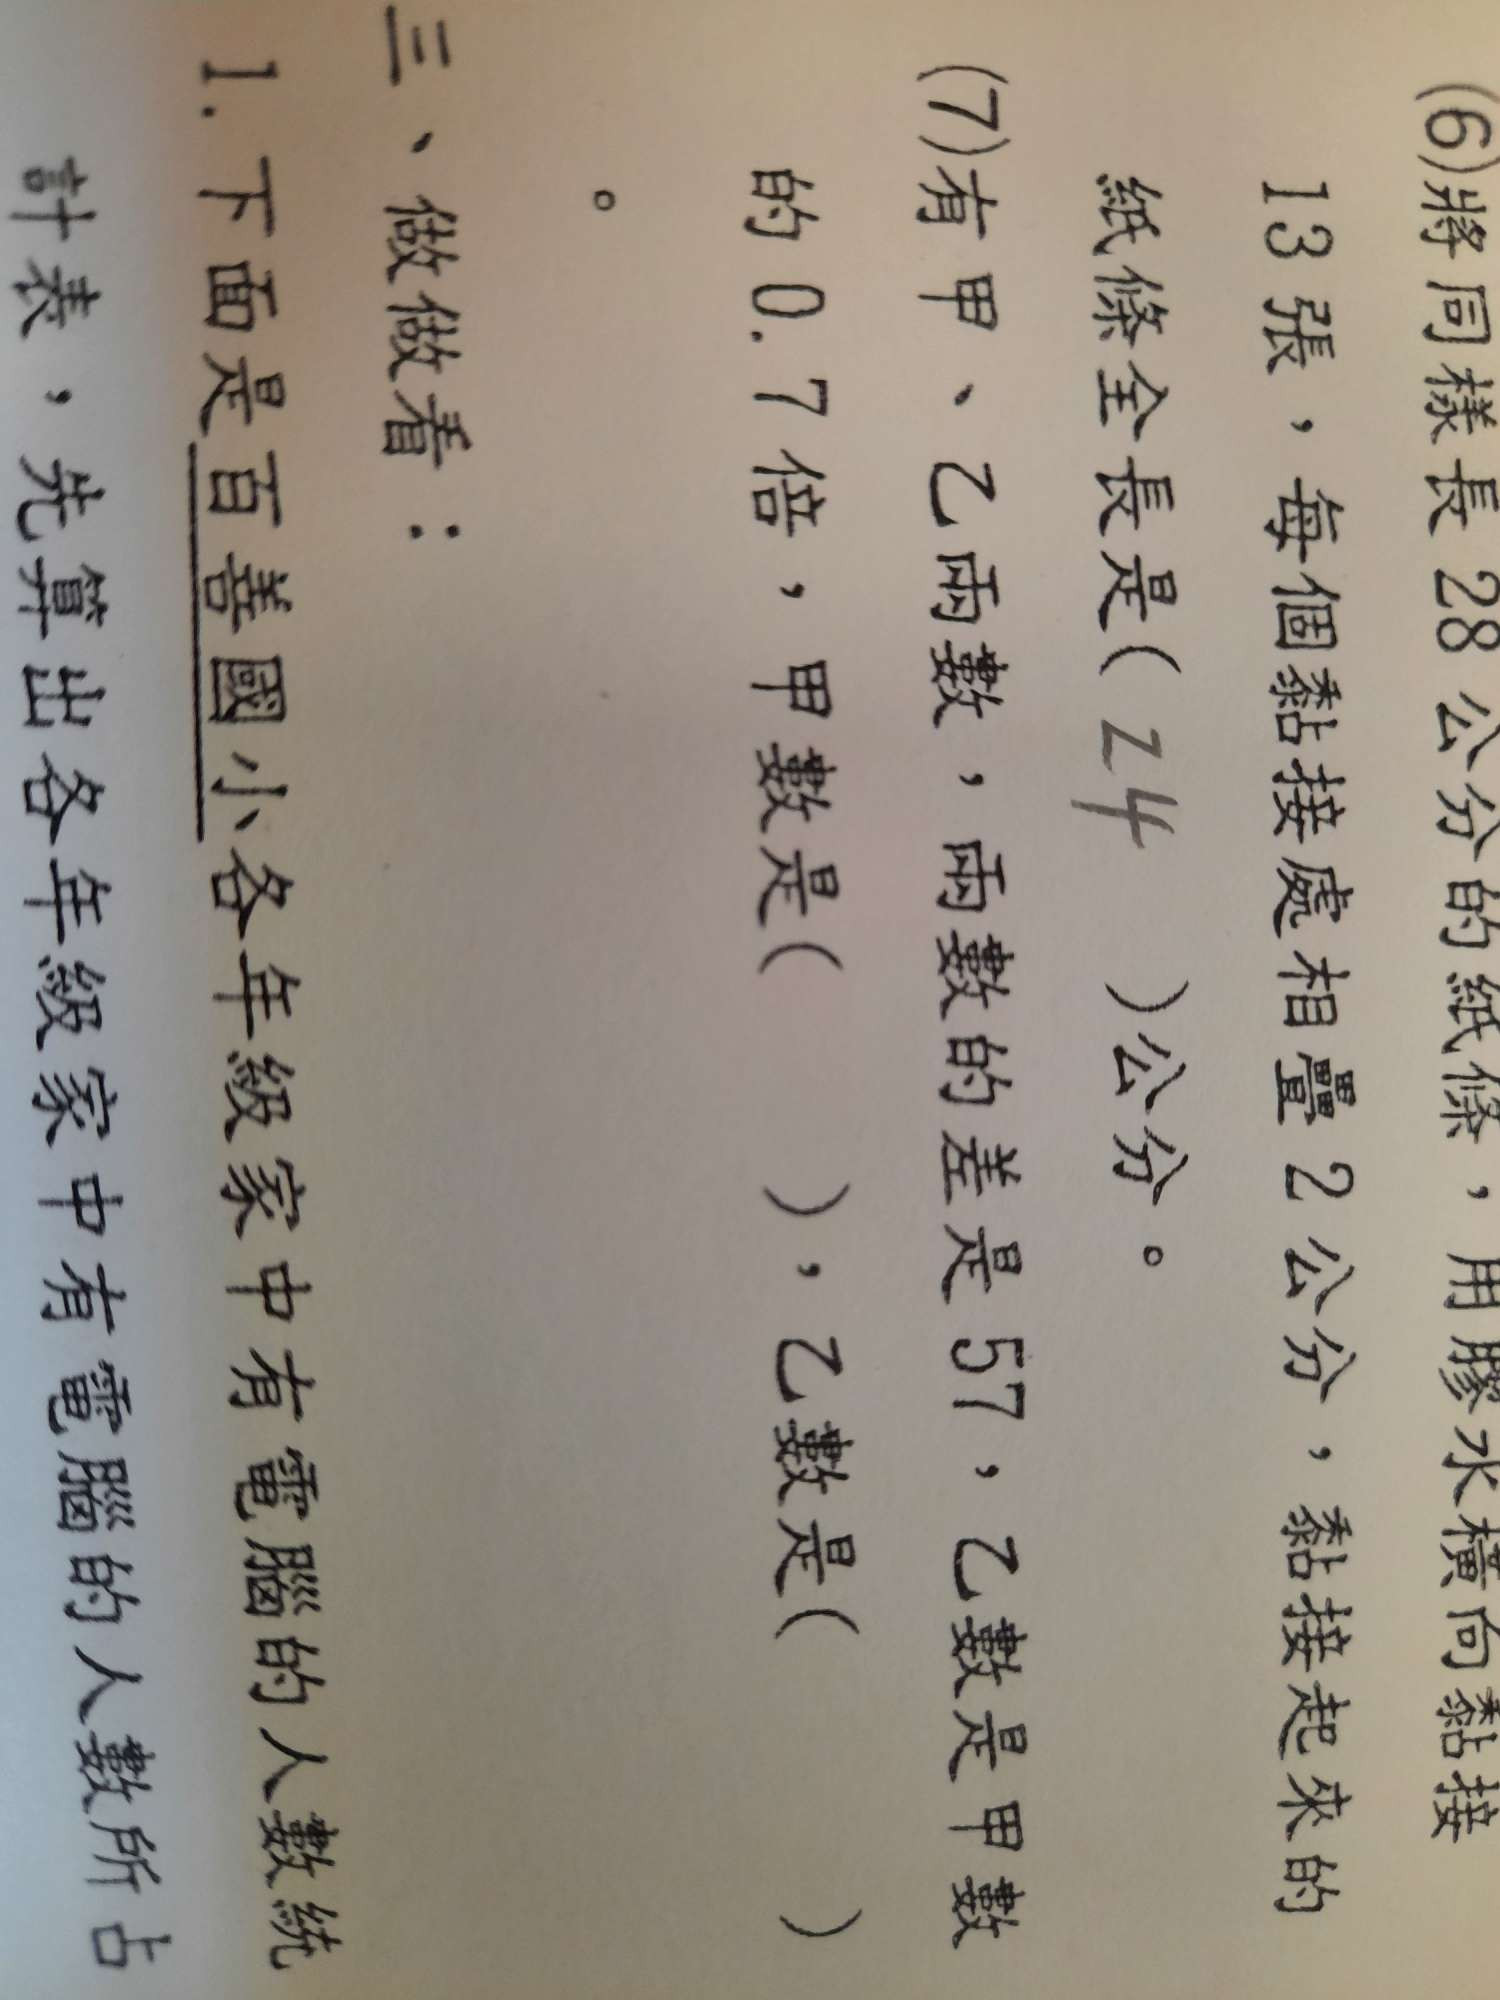 (6)將同樣長28公分的紙條，用膠水橫向黏接
13張，每個黏接處相疊2公分，黏接起來的
紙條全長是( 24 )公分。
(7)有甲、乙兩數，兩數的差是57，乙數是甲數
的0.7倍，甲數是( )，乙數是( )
。
三、做做看：
1.下面是百善國小各年級家中有電腦的人數統
計表，先算出各年級家中有電腦的人數所占